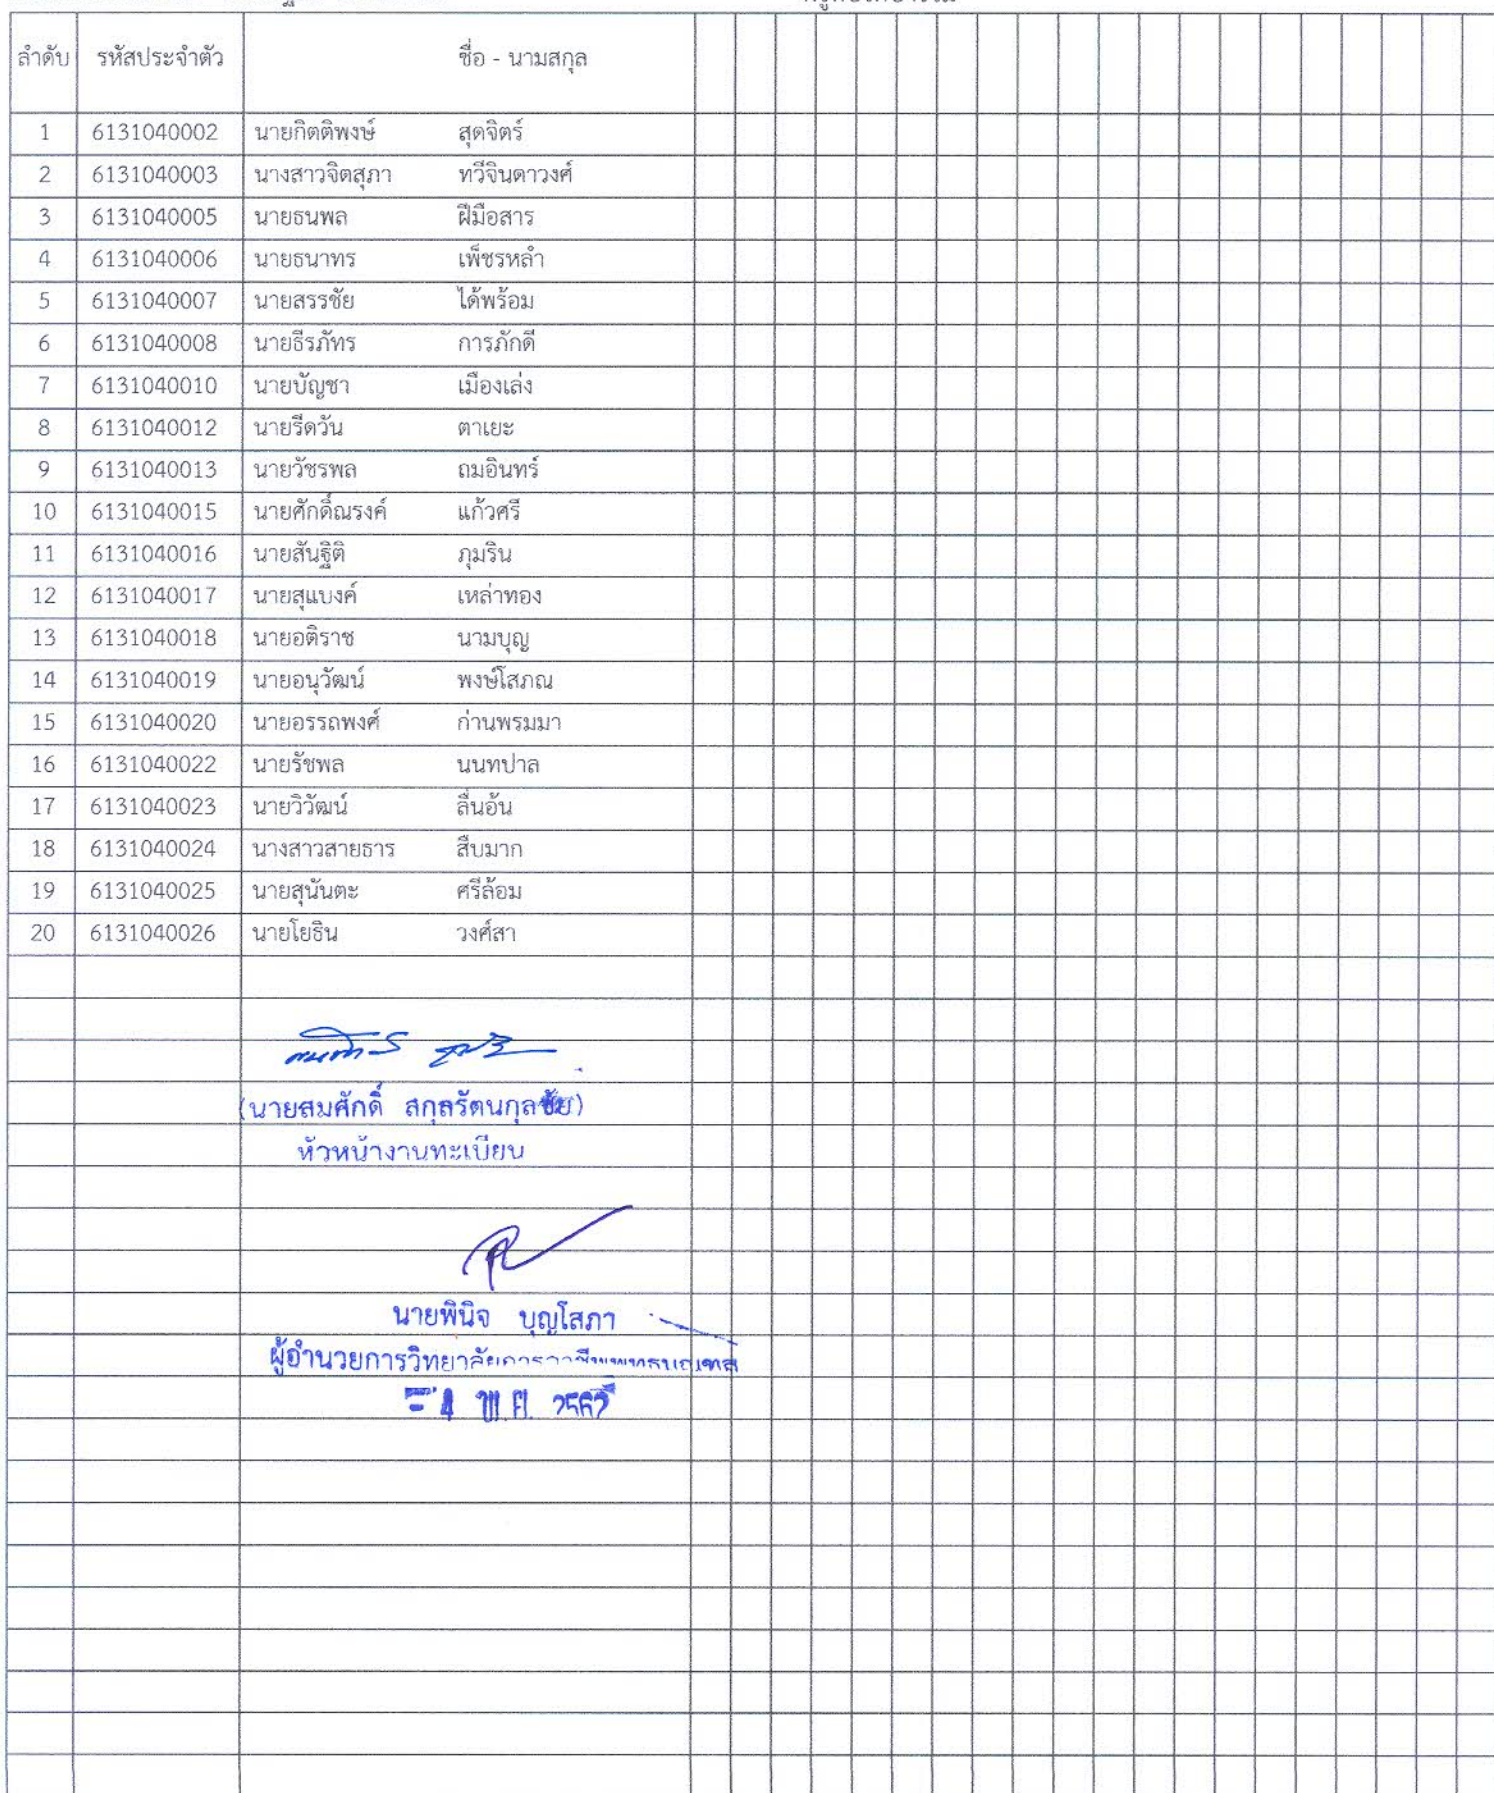 ลำดับ รหัสประจำตัว ชื่อ - นามสกุล
1 6131040002 นายกิตติพงษ์ สุดจิตร์
2 6131040003 นางสาวจิตสุภา ทวีจินดาวงศ์
3 6131040005 นายธนพล ฝีมือสาร
4 6131040006 นายธนาทร เพ็ชรหลำ
5 6131040007 นายสรรชัย ได้พร้อม
6 6131040008 นายธีรภัทร การภักดี
7 6131040010 นายบัญชา เมืองเล่ง
8 6131040012 นายรีดวัน ตาเยะ
9 6131040013 นายวัชรพล ถมอินทร์
10 6131040015 นายศักดิ์ณรงค์ แก้วศรี
11 6131040016 นายสันฐิติ ภุมริน
12 6131040017 นายสุแบงค์ เหล่าทอง
13 6131040018 นายอติราช นามบุญ
14 6131040019 นายอนุวัฒน์ พงษ์โสภณ
15 6131040020 นายอรรถพงศ์ ก่านพรมมา
16 6131040022 นายรัชพล นนทปาล
17 6131040023 นายวิวัฒน์ ลื่นอ้น
18 6131040024 นางสาวสายธาร สืบมาก
19 6131040025 นายสุนันตะ ศรีล้อม
20 6131040026 นายโยธิน วงศ์สา
(นายสมศักดิ์ สกุลรัตนกุลชัย)
หัวหน้างานทะเบียน
นายพินิจ บุญโสภา
ผู้อำนวยการวิทยาลัยการอาชีพพุทธมณฑล
- 4 พ.ย. 2562